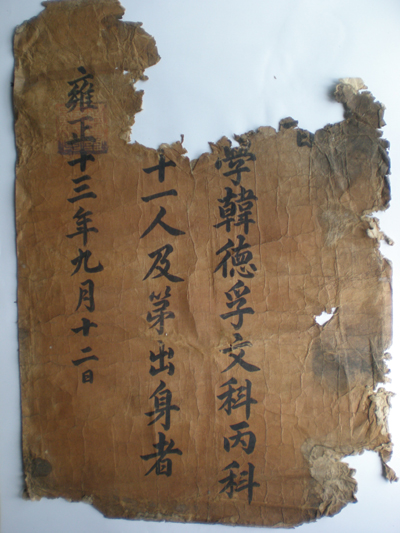 學韓德孚文科丙科
十一人及第出身者
雍正十三年九月十二日